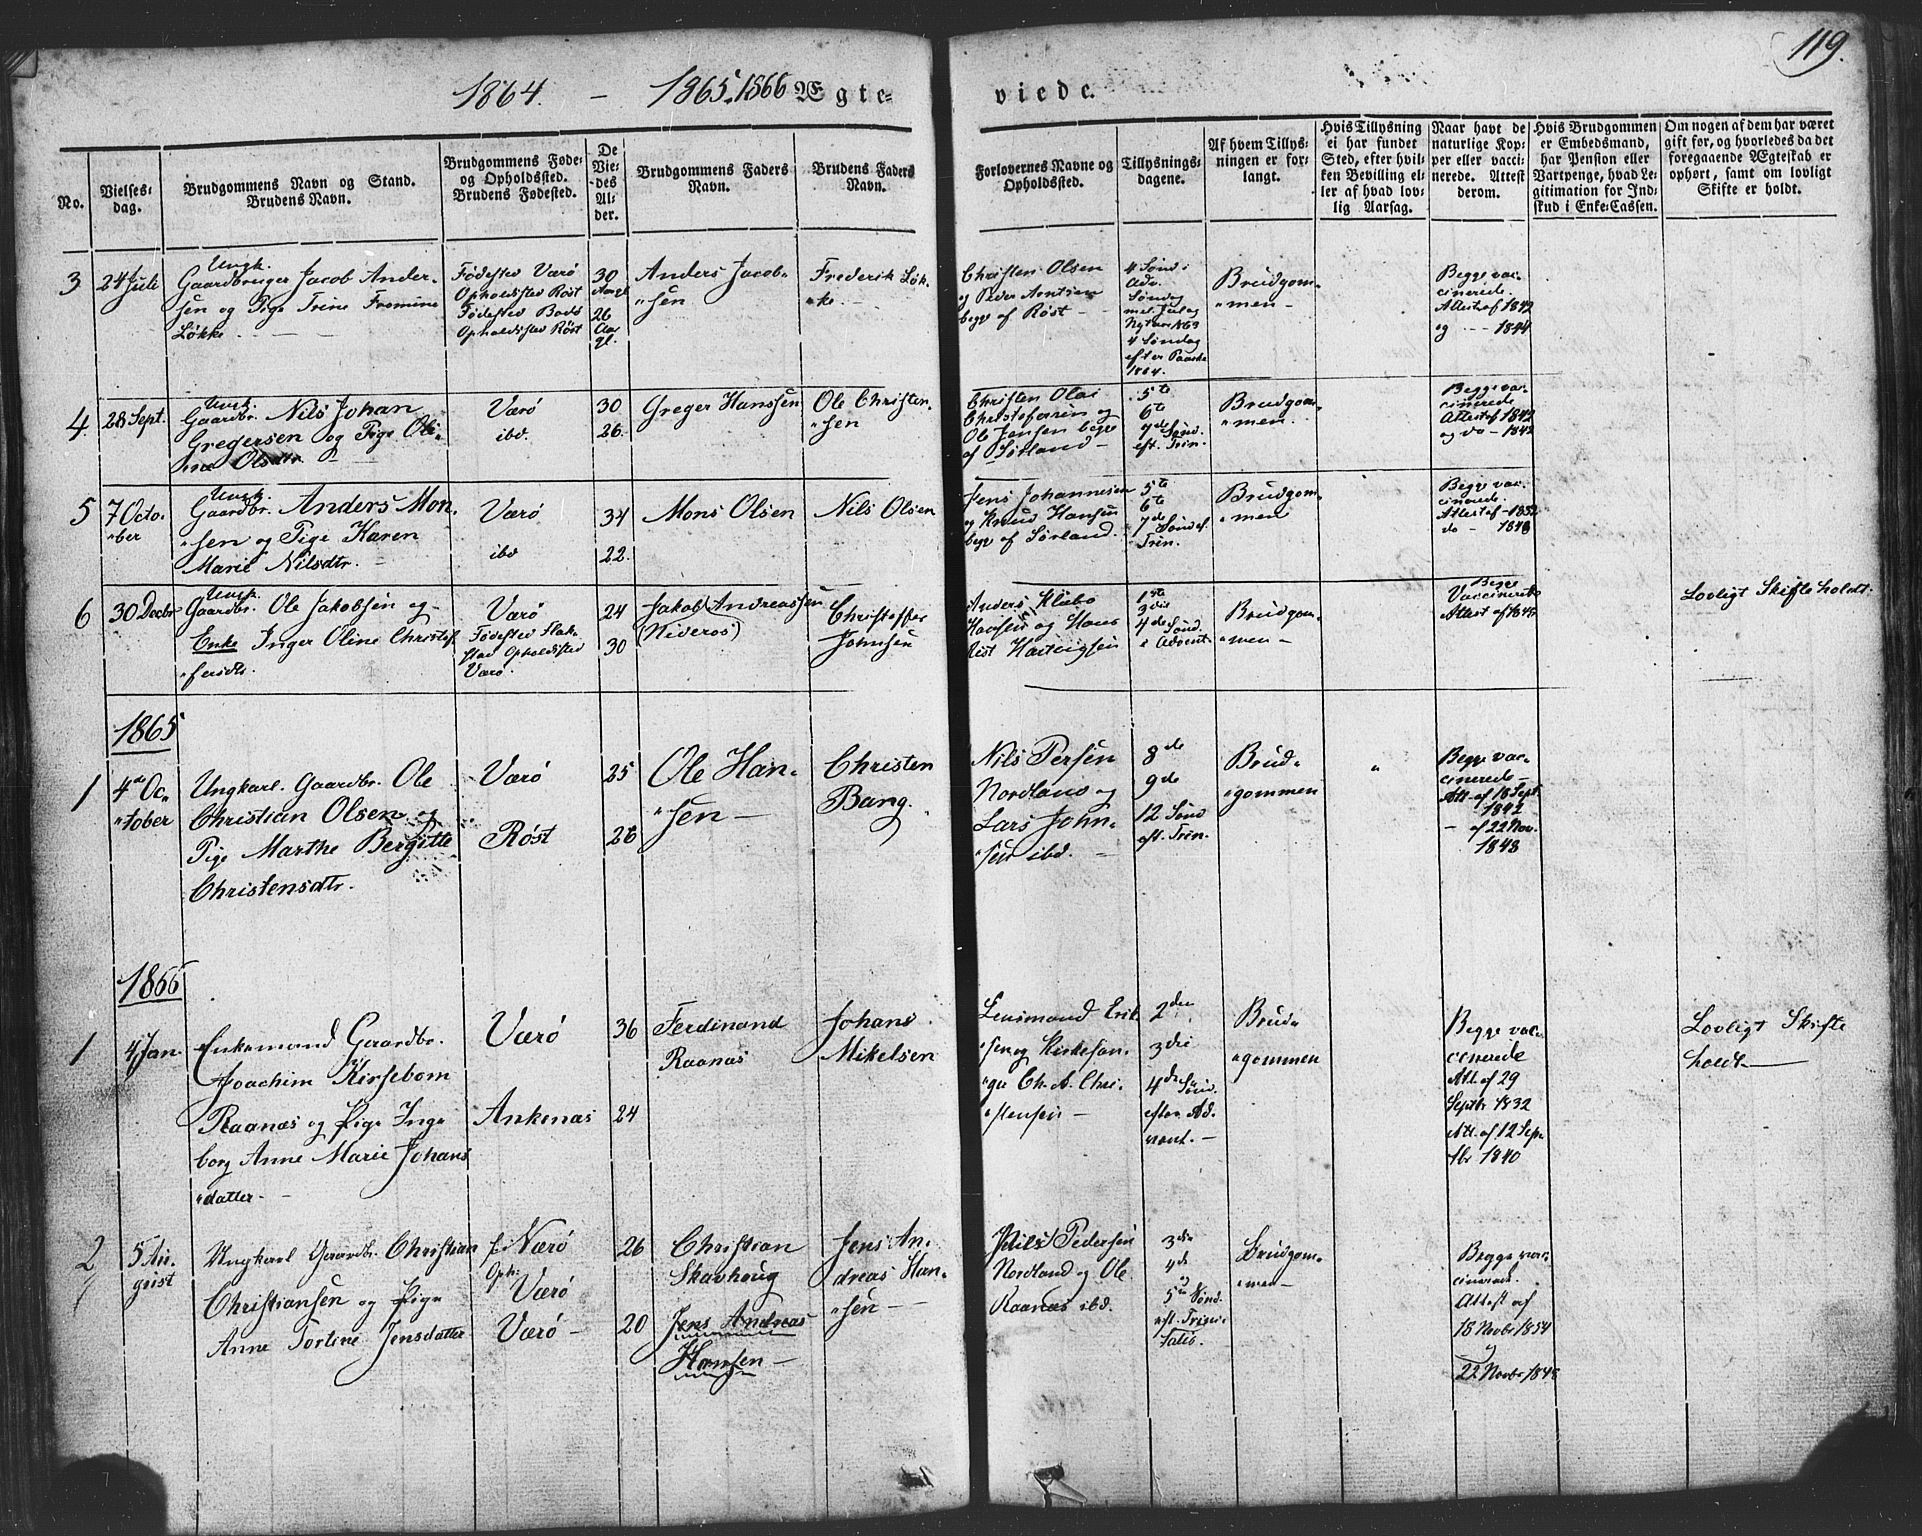 119.
1864. – 1865, 1866 Ægte-
viede.
No.
Vielses-
dag.
Brudgommens Navn og Stand.
Brudens Navn.
Brudgommens Føde-
og Opholdsted.
Brudens Fødested.
De
Vie-
des
Al-
der.
Brudgommens Faders
Navn.
Brudens Faders
Navn.
Forlovernes Navne og
Opholdsted.
Tillysnings-
dagene.
Af hvem Tillys-
ningen er for-
langt.
Hvis Tillysning
ei har fundet
Sted, efter hvil-
ken Bevilling el-
ler af hvad lov-
lig Aarsag.
Naar havt de
naturlige Kop-
per eller vacci-
nerede. Attest
derom.
Hvis Brudgommen
er Embedsmand,
har Pension eller
Vartpenge, hvad Le-
gitimation for Ind-
skud i Enke-Cassen.
Om nogen af dem har været
gift før, og hvorledes da det
foregaaende Ægteskab er
ophørt, samt om lovligt
Skifte er holdt.
3
24 Juli
Ungk.
Gaardbruger Jacob Ander-
sen og Pige Trine Fromine
Løkke
Fødested Værø
Opholdsted Røst
Fødested Bodø
Opholdsted Røst
30
Aar gl.
26
Aar
gl.
Anders Jacob-
sen
Frederik Løk-
ke.
Christen Olsen
og Peder Arntsen
begge af Røst
4 Sønd i
Adv.
Søndag
mel. Jul og
Nytaar 1863
4 Søndag
efter Paaske
1864.
Brudgom-
men
Begge vac-
cinerede
Attest af 1842
og 1844
4.
28 Sept.
Ungk.
Gaardbr. Nils Johan
Gregersen og Pige Oli-
ne Olsdtr.
Værø
ibd.
30
26.
Greger Hanssen
Ole Christen-
sen
Christen Olai
Christofersen og
Ole Jensen begge
af Sørland
5te
6te
7de Sønd.
eft. Trin.
Brudgom-
men.
Begge vac-
cinerede
Attest af 1842
og do – 1842
5
7 Octo-
ber
Ungk.
Gaardbr. Anders Mon-
sen og Pige Karen
Marie Nilsdtr.
Værø
ibd
34
22.
Mons Olsen
Nils Olsen
Jens Johannesen
og Knud Hansen
begge af Sørland.
5te
6te
7de Sønd ef.
Trin.
Brudgom-
men
Begge vac-
cinerede.
Attest af – 1832
do – 1848
6
30 Decbr
Ungk.
Gaardbr. Ole Jakobsen og
Enke Inger Oline Christof-
fersdtr.
Værø
Fødested Flak-
stad Opholdsted
Værø.
24
30
Jakob Andreassen
(Nideros)
Christoffer
Johnsen
Anders Klæbo
Hansen og Hans
Rist Hartvigsen
1ste
3die
4de Sønd
i Advent
Brudgom-
men
Begge
Vaccinerede
Attest af 1848
Lovligt Skifte holdt.
1865
1
4de Oc-
tober
Ungkarl. Gaardbr. Ole
Christian Olsen og
Pige Marthe Bergitte
Christensdtr.
Værø
Røst
25
26
Ole Han-
sen
Christen
Bang.
Nils Persen
Nordland og
Lars John-
sen ibd.
8de
9de
12 Sønd
eft. Trin.
Brud-
gommen
"
Begge vac-
cinerede
Att. af 18 Sept.
1842
– af 22 Nov.
1848
1866
1
4 Jan.
Enkemand Gaardbr.
Joachim Kirsebom
Raanas og Pige Inge
borg Anne Marie Johans
datter
Værø
Ankenæs
36
24
Ferdinand
Raanas
Johans
Mikelsen
Lensmand Erik-
sen og Kirkesan-
ger Ch. A. Chri-
stensen
2den
3die
4de Sønd.
efter Ad-
vent.
Brud-
gommen
Begge vac-
cinerede
Att. af 29
Septbr 1832
Att. af 12 Sep-
tbr 1840
Lovligt Skifte
holdt
2
5 Au-
gust
Ungkarl Gaardbr. Christian
Christiansen og Pige
Anne Tortine Jensdatter
f. Nærø
Oph:
Værø
Værø
26
20
Christian
Skavhoug
Jens Andreas
Hansen
Jens An-
dreas Han-
sen
Nils Pedersen
Nordland og Ole
Raanæs ibd.
3die
4de
5te Sønd.
eft. Trini-
tatis.
Brudgom-
men
Begge vac-
cinerede.
Attest af
18 Novbr 1854
og
22 Novbr 1848